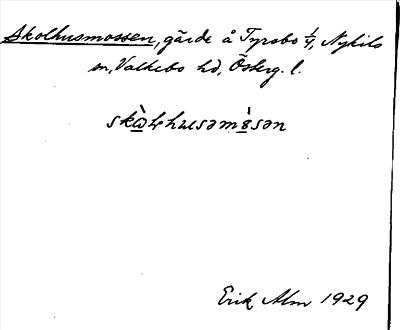 Skolhusmossen, gärde å Tyrsbo 1/4, Nykils
sn, Valkebo hd, Österg. l.
Erik Alm 1929